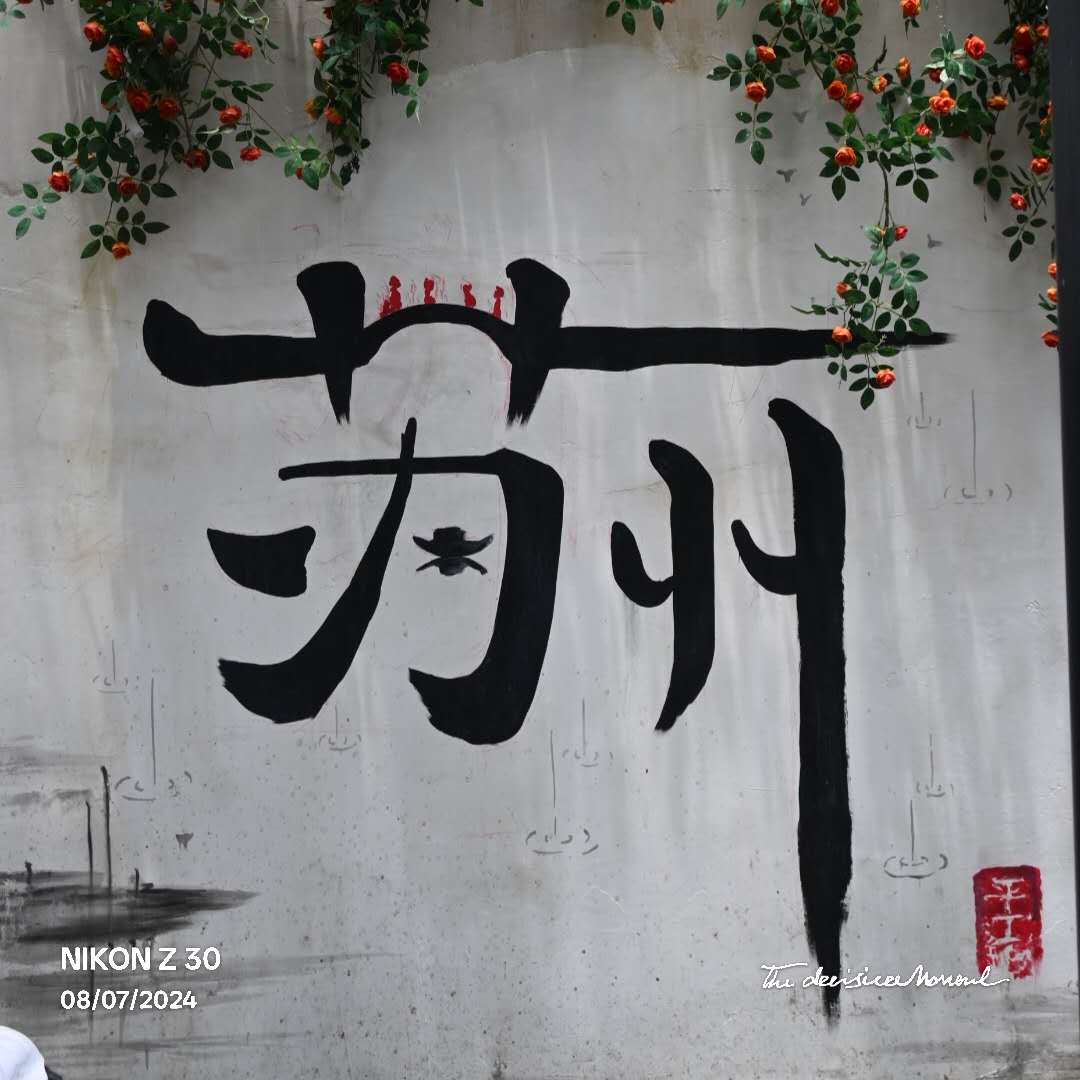 苏州
平江路
NIKON Z 30
08/07/2024
The decisive Moment